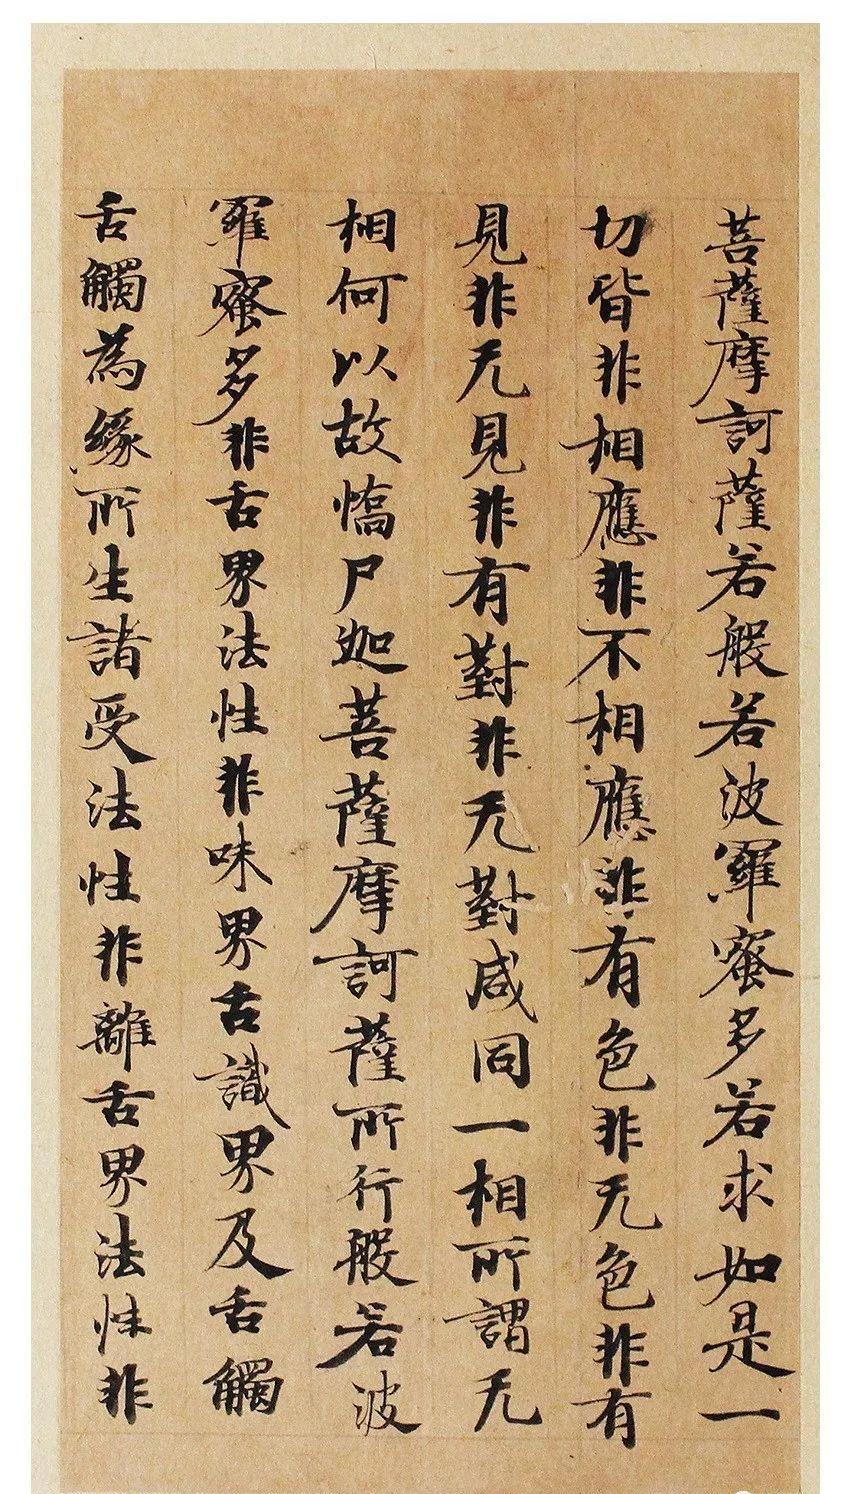 菩薩摩訶薩若般若波羅蜜多若求如是一
切皆非相應非不相應非有色非无色非有
見非无見非有對非无對咸同一相所謂无
相何以故憍尸迦菩薩摩訶薩所行般若波
羅蜜多非舌界法性非味界舌識界及舌觸
舌觸為緣所生諸受法性非離舌界法性非